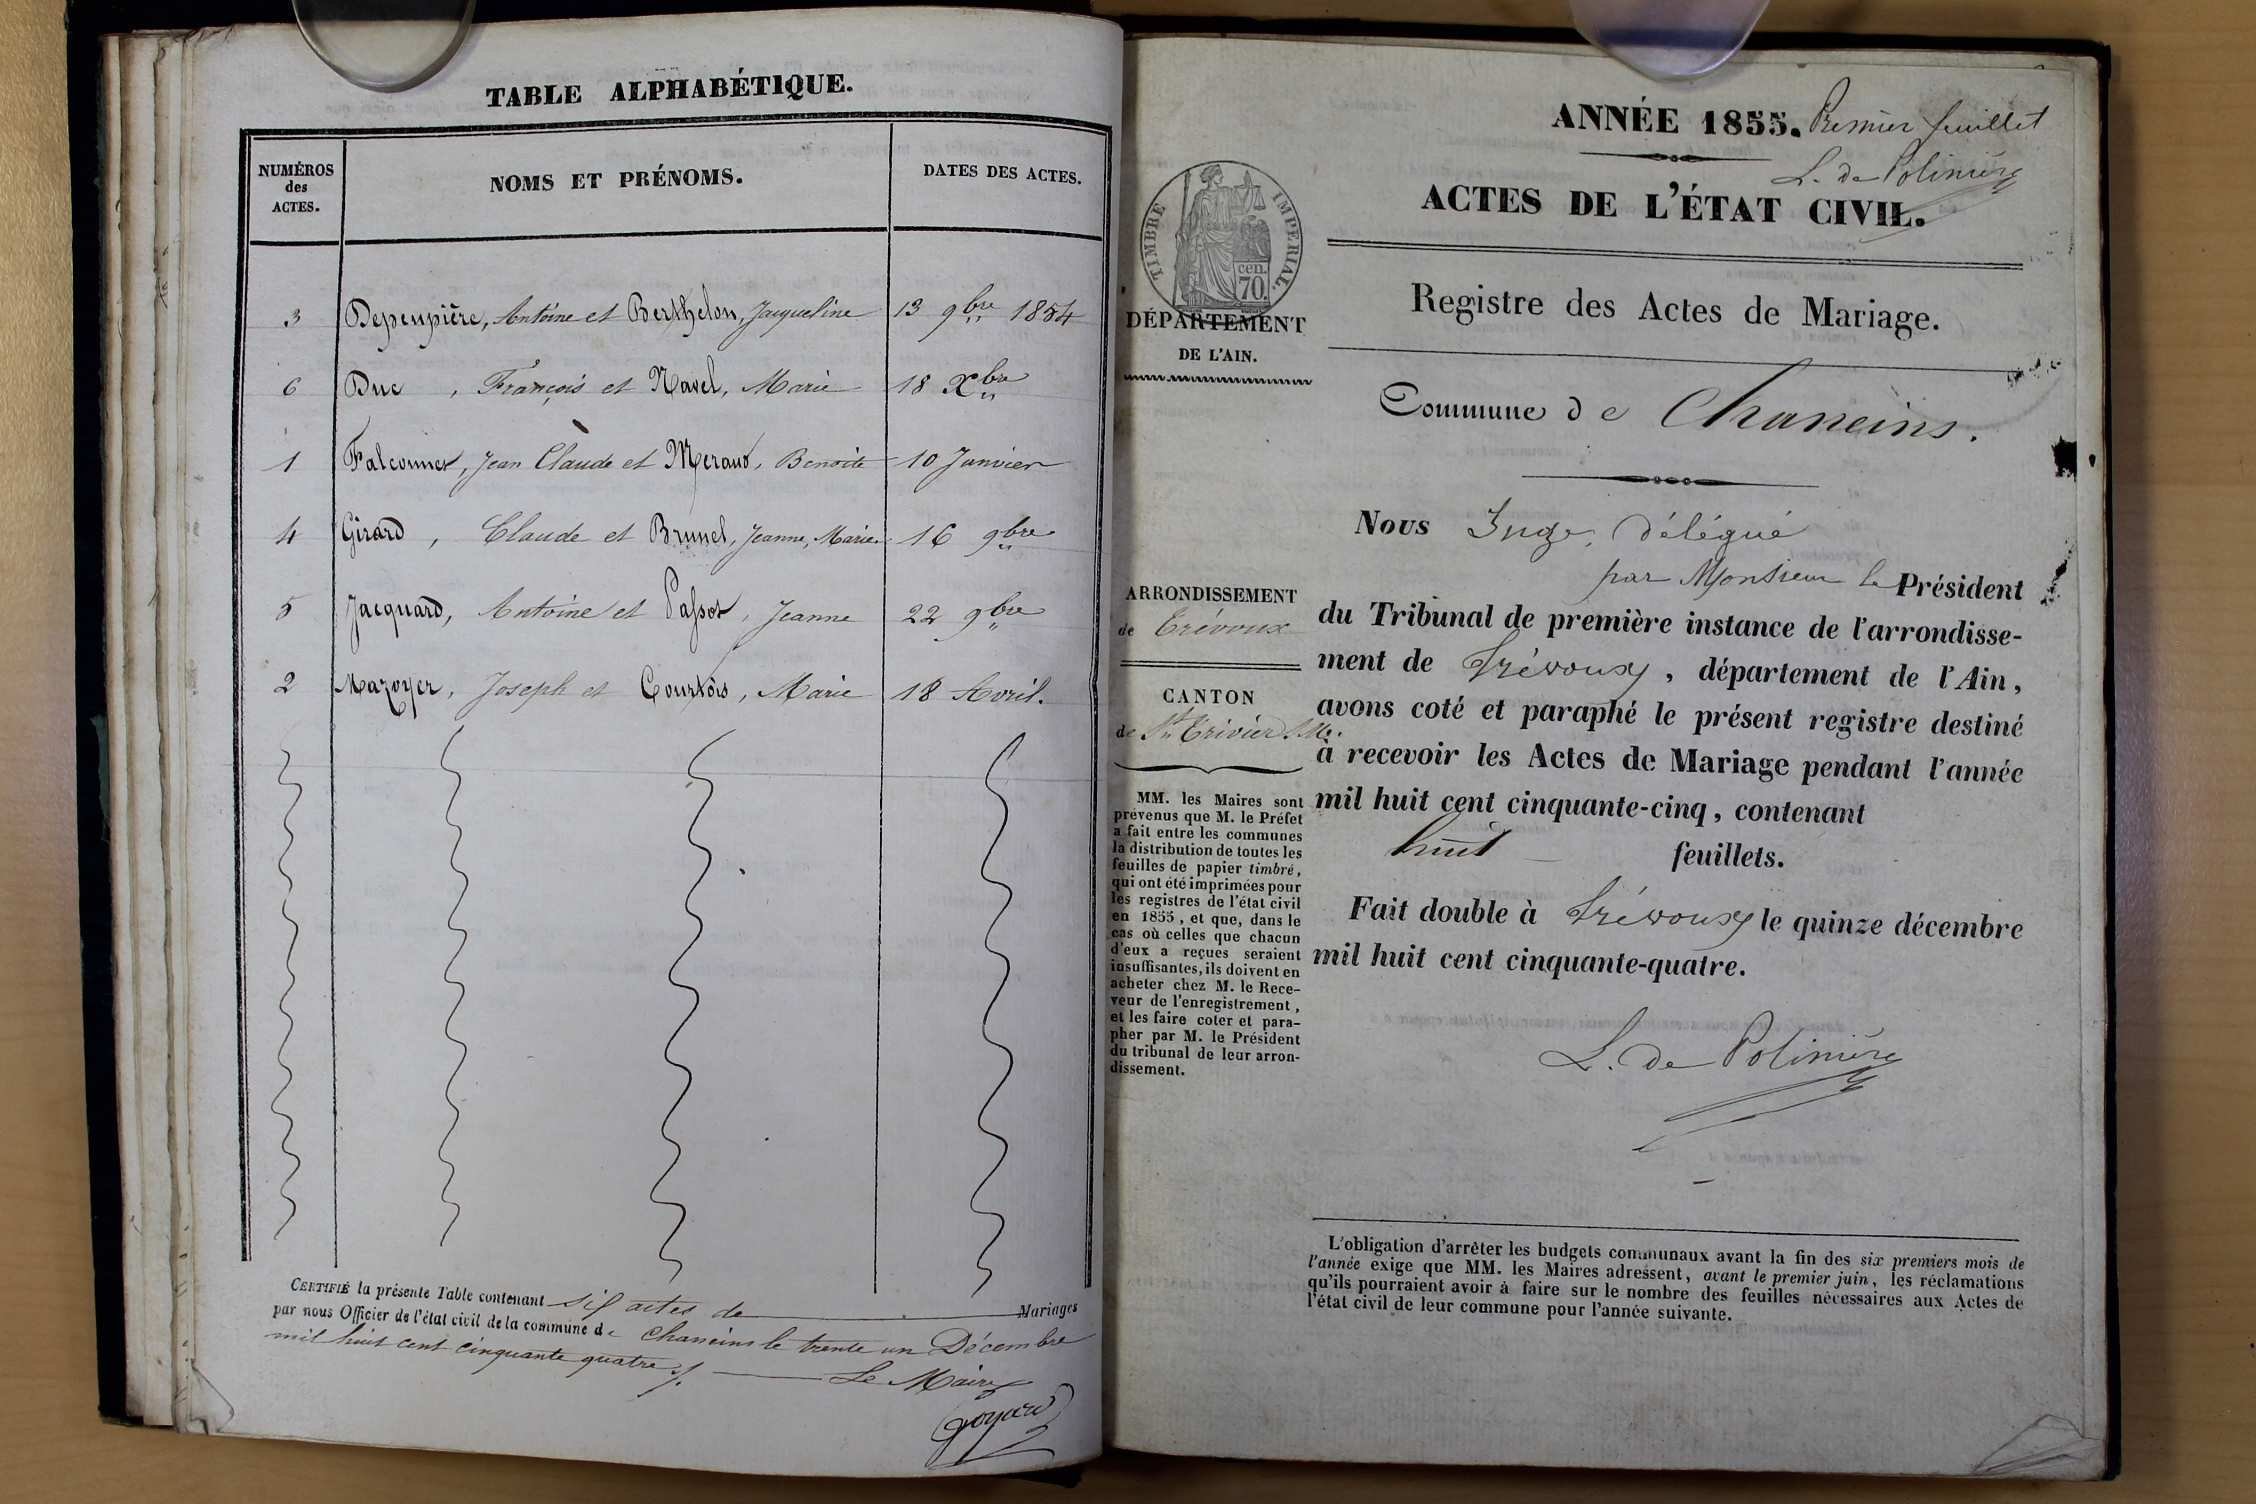 TABLE ALPHABÉTIQUE.
NUMÉROS
des
ACTES.
NOMS ET PRÉNOMS.
DATES DES ACTES.
3 Depeupière, Antoine et Berthelon, Jacqueline 13 9bre 1854
6 Duc, François et Navel, Marie 18 Xbre
1 Falconnet, Jean Claude et Meraud, Benoite 10 Janvier
4 Girard, Claude et Brunel, Jeanne, Marie. 16 9bre
5 Jacquard, Antoine et Passot, Jeanne 22 9bre
2 Mazoyer, Joseph et Courtois, Marie 18 Avril.
CERTIFIÉ la présente Table contenant six actes de Mariages
par nous Officier de l'état civil de la commune de Chaneins le trente un Décembre
mil huit cent cinquante quatre /.
Le Maire
Goyard
ANNÉE 1855. Premier feuillet
L. de Polinière
ACTES DE L'ÉTAT CIVIL.
TIMBRE IMPERIAL.
70 cen.
Registre des Actes de Mariage.
DÉPARTEMENT
DE L'AIN.
Commune de Chaneins.
Nous Juge, délégué
par Monsieur le Président
ARRONDISSEMENT
de Trévoux
CANTON
de St Trivier s/M.
MM. les Maires sont
prévenus que M. le Préfet
a fait entre les communes
la distribution de toutes les
feuilles de papier timbré,
qui ont été imprimées pour
les registres de l'état civil
en 1855, et que, dans le
cas où celles que chacun
d'eux a reçues seraient
insuffisantes, ils doivent en
acheter chez M. le Rece-
veur de l'enregistrement,
et les faire coter et para-
pher par M. le Président
du tribunal de leur arron-
dissement.
du Tribunal de première instance de l'arrondisse-
ment de Trévoux, département de l'Ain,
avons coté et paraphé le présent registre destiné
à recevoir les Actes de Mariage pendant l'année
mil huit cent cinquante-cinq, contenant
huit feuillets.
Fait double à Trévoux le quinze décembre
mil huit cent cinquante-quatre.
L. de Polinière
L'obligation d'arrêter les budgets communaux avant la fin des six premiers mois de
l'année exige que MM. les Maires adressent, avant le premier juin, les réclamations
qu'ils pourraient avoir à faire sur le nombre des feuilles nécessaires aux Actes de
l'état civil de leur commune pour l'année suivante.